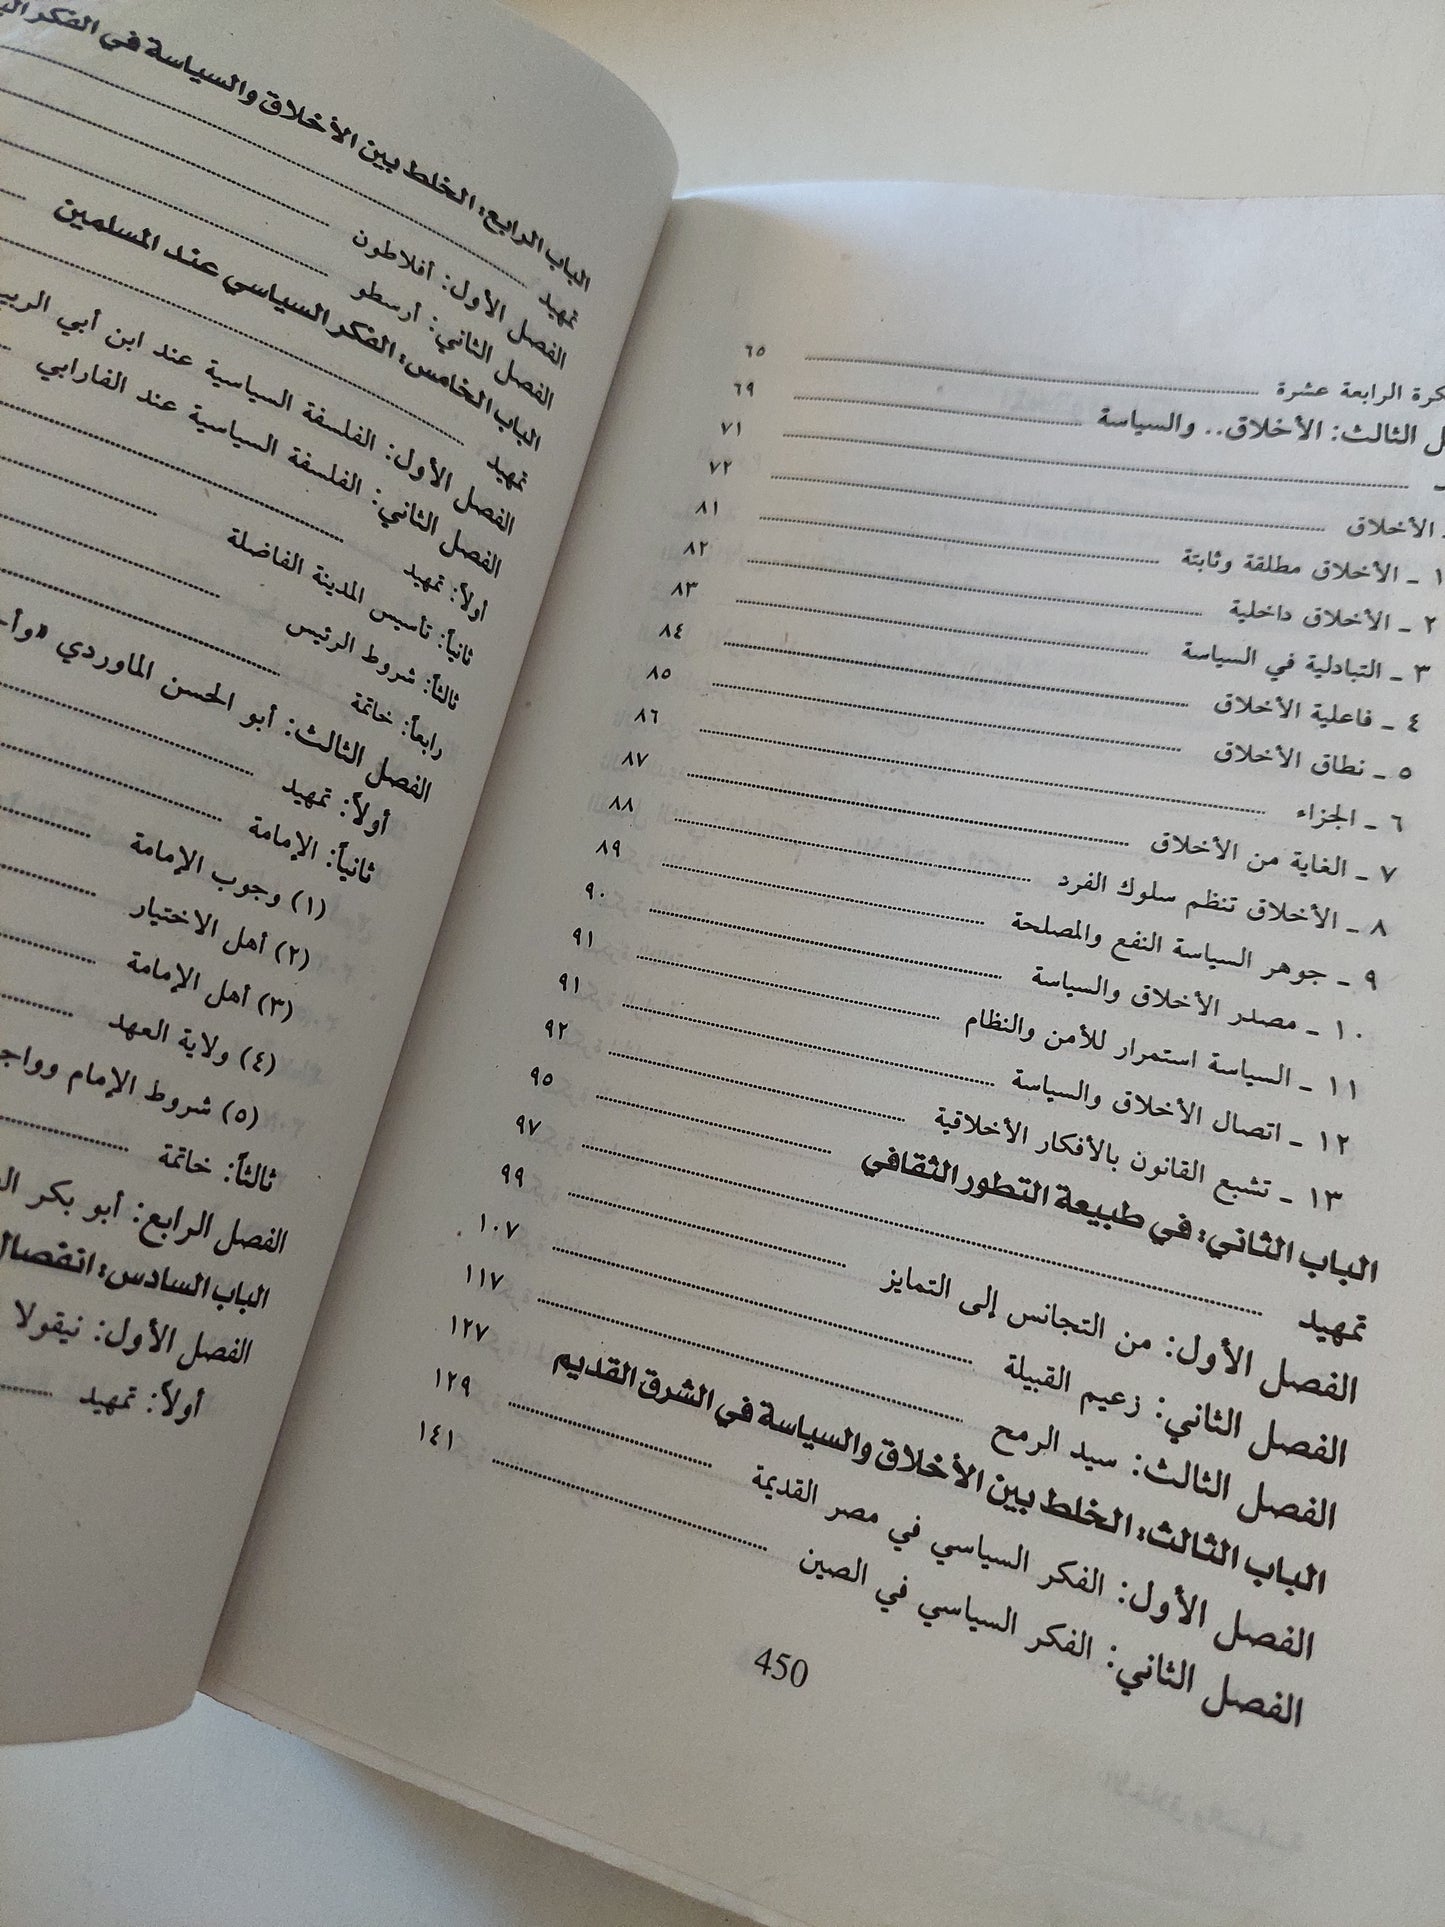 كرة الرابعة عشرة ........ ٦٥
ل الثالث: الأخلاق.. والسياسة ........ ٦٩
........ ٧١
ـ الأخلاق ........ ٧٢
١ ـ الأخلاق مطلقة وثابتة ........ ٨١
٢ ـ الأخلاق داخلية ........ ٨٢
٣ ـ التبادلية في السياسة ........ ٨٣
٤ ـ فاعلية الأخلاق ........ ٨٤
٥ ـ نطاق الأخلاق ........ ٨٥
٦ ـ الجزاء ........ ٨٦
٧ ـ الغاية من الأخلاق ........ ٨٧
٨ ـ الأخلاق تنظم سلوك الفرد ........ ٨٨
٩ ـ جوهر السياسة النفع والمصلحة ........ ٨٩
١٠ ـ مصدر الأخلاق والسياسة ........ ٩٠
١١ ـ السياسة استمرار للأمن والنظام ........ ٩١
١٢ ـ اتصال الأخلاق والسياسة ........ ٩١
١٣ ـ تشبع القانون بالأفكار الأخلاقية ........ ٩٢
الباب الثاني: في طبيعة التطور الثقافي ........ ٩٥
تمهيد ........ ٩٧
الفصل الأول: من التجانس إلى التمايز ........ ٩٩
الفصل الثاني: زعيم القبيلة ........ ١٠٧
الفصل الثالث: سيد الرمح ........ ١١٧
الباب الثالث: الخلط بين الأخلاق والسياسة في الشرق القديم ١٢٧
الفصل الأول: الفكر السياسي في مصر القديمة ........ ١٢٩
الفصل الثاني: الفكر السياسي في الصين ........ ١٤١
450
الباب الرابع: الخلط بين الأخلاق والسياسة في الفكر
تمهيد ........
الفصل الأول: أفلاطون ........
الفصل الثاني: أرسطو ........
الباب الخامس: الفكر السياسي عند المسلمين ........
تمهيد ........
الفصل الأول: الفلسفة السياسية عند ابن أبي الربيـ
الفصل الثاني: الفلسفة السياسية عند الفارابي ........
أولاً: تمهيد ........
ثانياً: تأسيس المدينة الفاضلة ........
ثالثاً: شروط الرئيس ........
رابعاً: خاتمة ........
الفصل الثالث: أبو الحسن الماوردي «وأ
أولاً: تمهيد ........
ثانياً: الإمامة ........
(١) وجوب الإمامة ........
(٢) أهل الاختيار ........
(٣) أهل الإمامة ........
(٤) ولاية العهد ........
(٥) شروط الإمام وواجـ
ثالثاً: خاتمة ........
الفصل الرابع: أبو بكر
الباب السادس: انفصال
الفصل الأول: نيقولا
أولاً: تمهيد ........